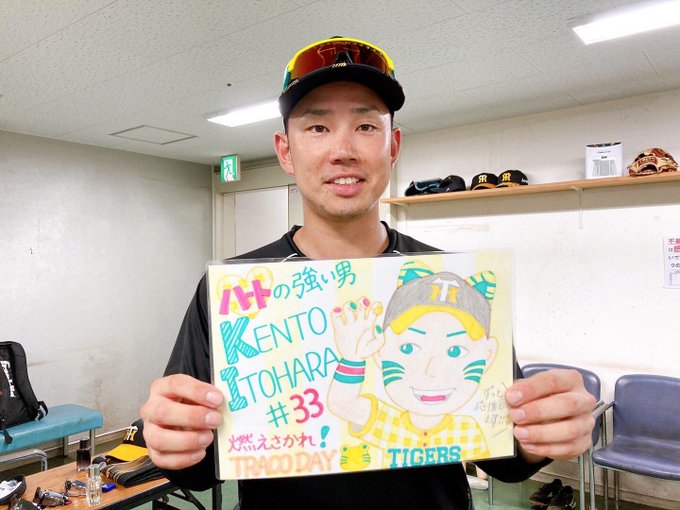 ハートの強い男
KENTO
ITOHARA
#33
燃えさかれ!
TORACO DAY
TIGERS
ずっと
応援して
ます!!